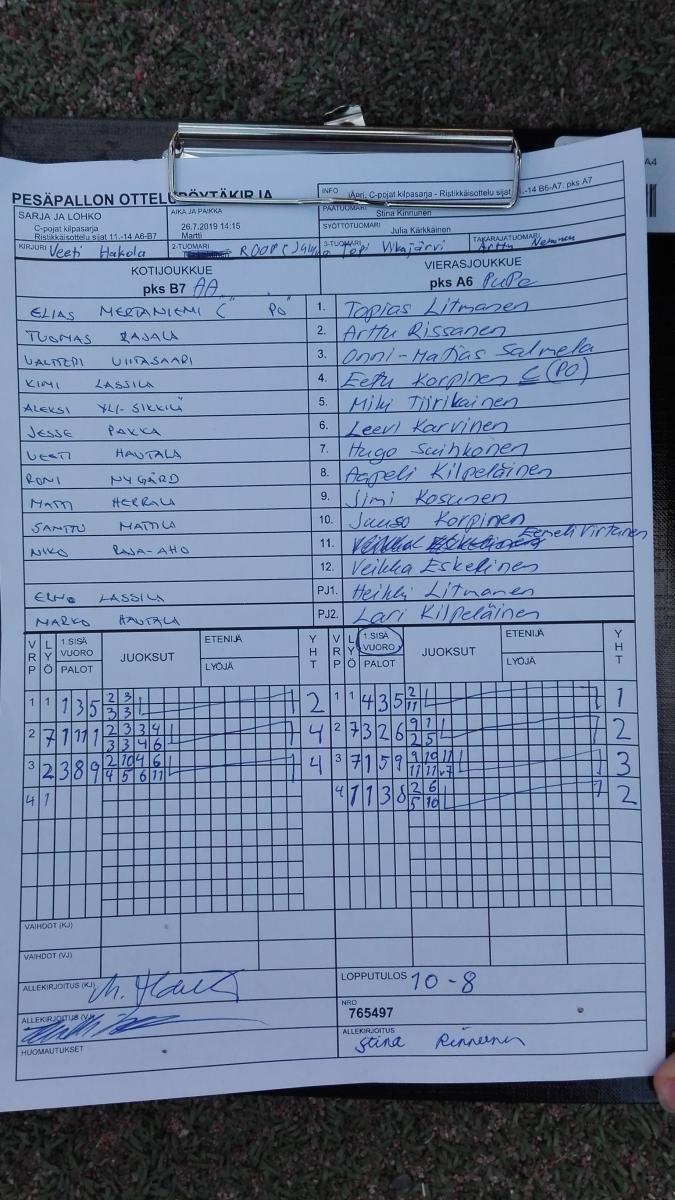 PESÄPALLON OTTELUPÖYTÄKIRJA
SARJA JA LOHKO
C-pojat kilpasarja
Ristikkäisottelu sijat 11.-14 A6-B7
AIKA JA PAIKKA
26.7.2019 14:15
Martti
INFO
jÄeri, C-pojat kilpasarja - Ristikkäisottelu sijat 11.-14 B6-A7: pks A7
PÄÄTUOMARI
Stina Kinnunen
SYÖTTÖTUOMARI
Julia Kärkkäinen
KIRJURI Veeti Hakola
2-TUOMARI
3-TUOMARI Topi
TAKARAJATUOMARI
Arttu
KOTIJOUKKUE
pks B7 AA
VIERASJOUKKUE
pks A6 PuPe
ELIAS MERTANIEMI C PO 1. Topias Litmanen
TUOMAS RAJALA 2. Arttu Rissanen
VALTTERI VIITASAARI 3. Onni-Matias Salmela
KIMI LASSILA 4. Eetu Korpinen C (PO)
ALEKSI YLI-SIKKILÄ 5. Miki Tiirikainen
JESSE PAKKA 6. Leevi Karvinen
VEETI HAUTALA 7. Hugo Suihkonen
RONI NYGÅRD 8. Aapeli Kilpeläinen
MATTI HERRALA 9. Simi Kosunen
SANTTU MATTILA 10. Juuso Korpinen
NIKO RAJA-AHO 11. Eemeli Virtanen
12. Veikka Eskelinen
LASSILA PJ1. Heikki Litmanen
MARKO HAUTALA PJ2. Lari Kilpeläinen
VRP LYÖ 1.SISÄ VUORO PALOT JUOKSUT ETENIJÄ LYÖJÄ YHT VRP LYÖ 1.SISÄ VUORO PALOT JUOKSUT ETENIJÄ LYÖJÄ YHT
1 1 1 3 5 2 3 2 1 1 4 3 5 2 1
3 3 11
2 7 1 11 1 2 3 3 4 4 2 7 3 2 6 9 1 2
3 3 4 6 2 5
3 2 3 8 9 2 10 4 6 4 3 7 1 5 9 9 10 11 3
4 5 6 11 11 11 v7
4 1 4 1 1 3 8 2 6 2
5 10
VAIHDOT (KJ)
VAIHDOT (VJ)
ALLEKIRJOITUS (KJ)
LOPPUTULOS 10-8
ALLEKIRJOITUS (VJ)
NRO
765497
HUOMAUTUKSET
ALLEKIRJOITUS
Stina
A4